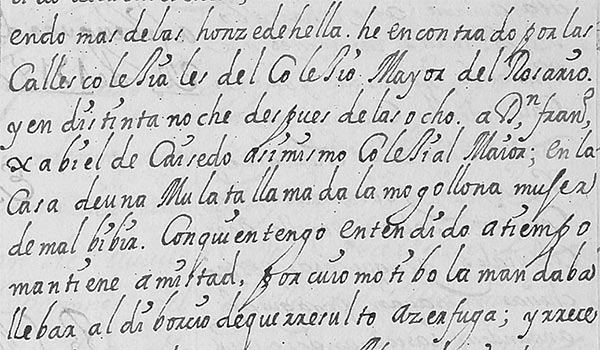 endo mas delas honze dehella. he encontrado por las
Calles colesiales del Colesio Mayor del Rosario.
y en distinta noche despues delas ocho. a Dn, franco,
xabiel de Caisedo asimismo Colesial Maior; en la
Casa deuna Mulata llamada la mogollona muser
de mal bibir. Conquien tengo entendido a tiempo
mantiene amistad, por cuio motibo la mandaba
llebar al diborcio dequerresulto azer fuga; y rrece